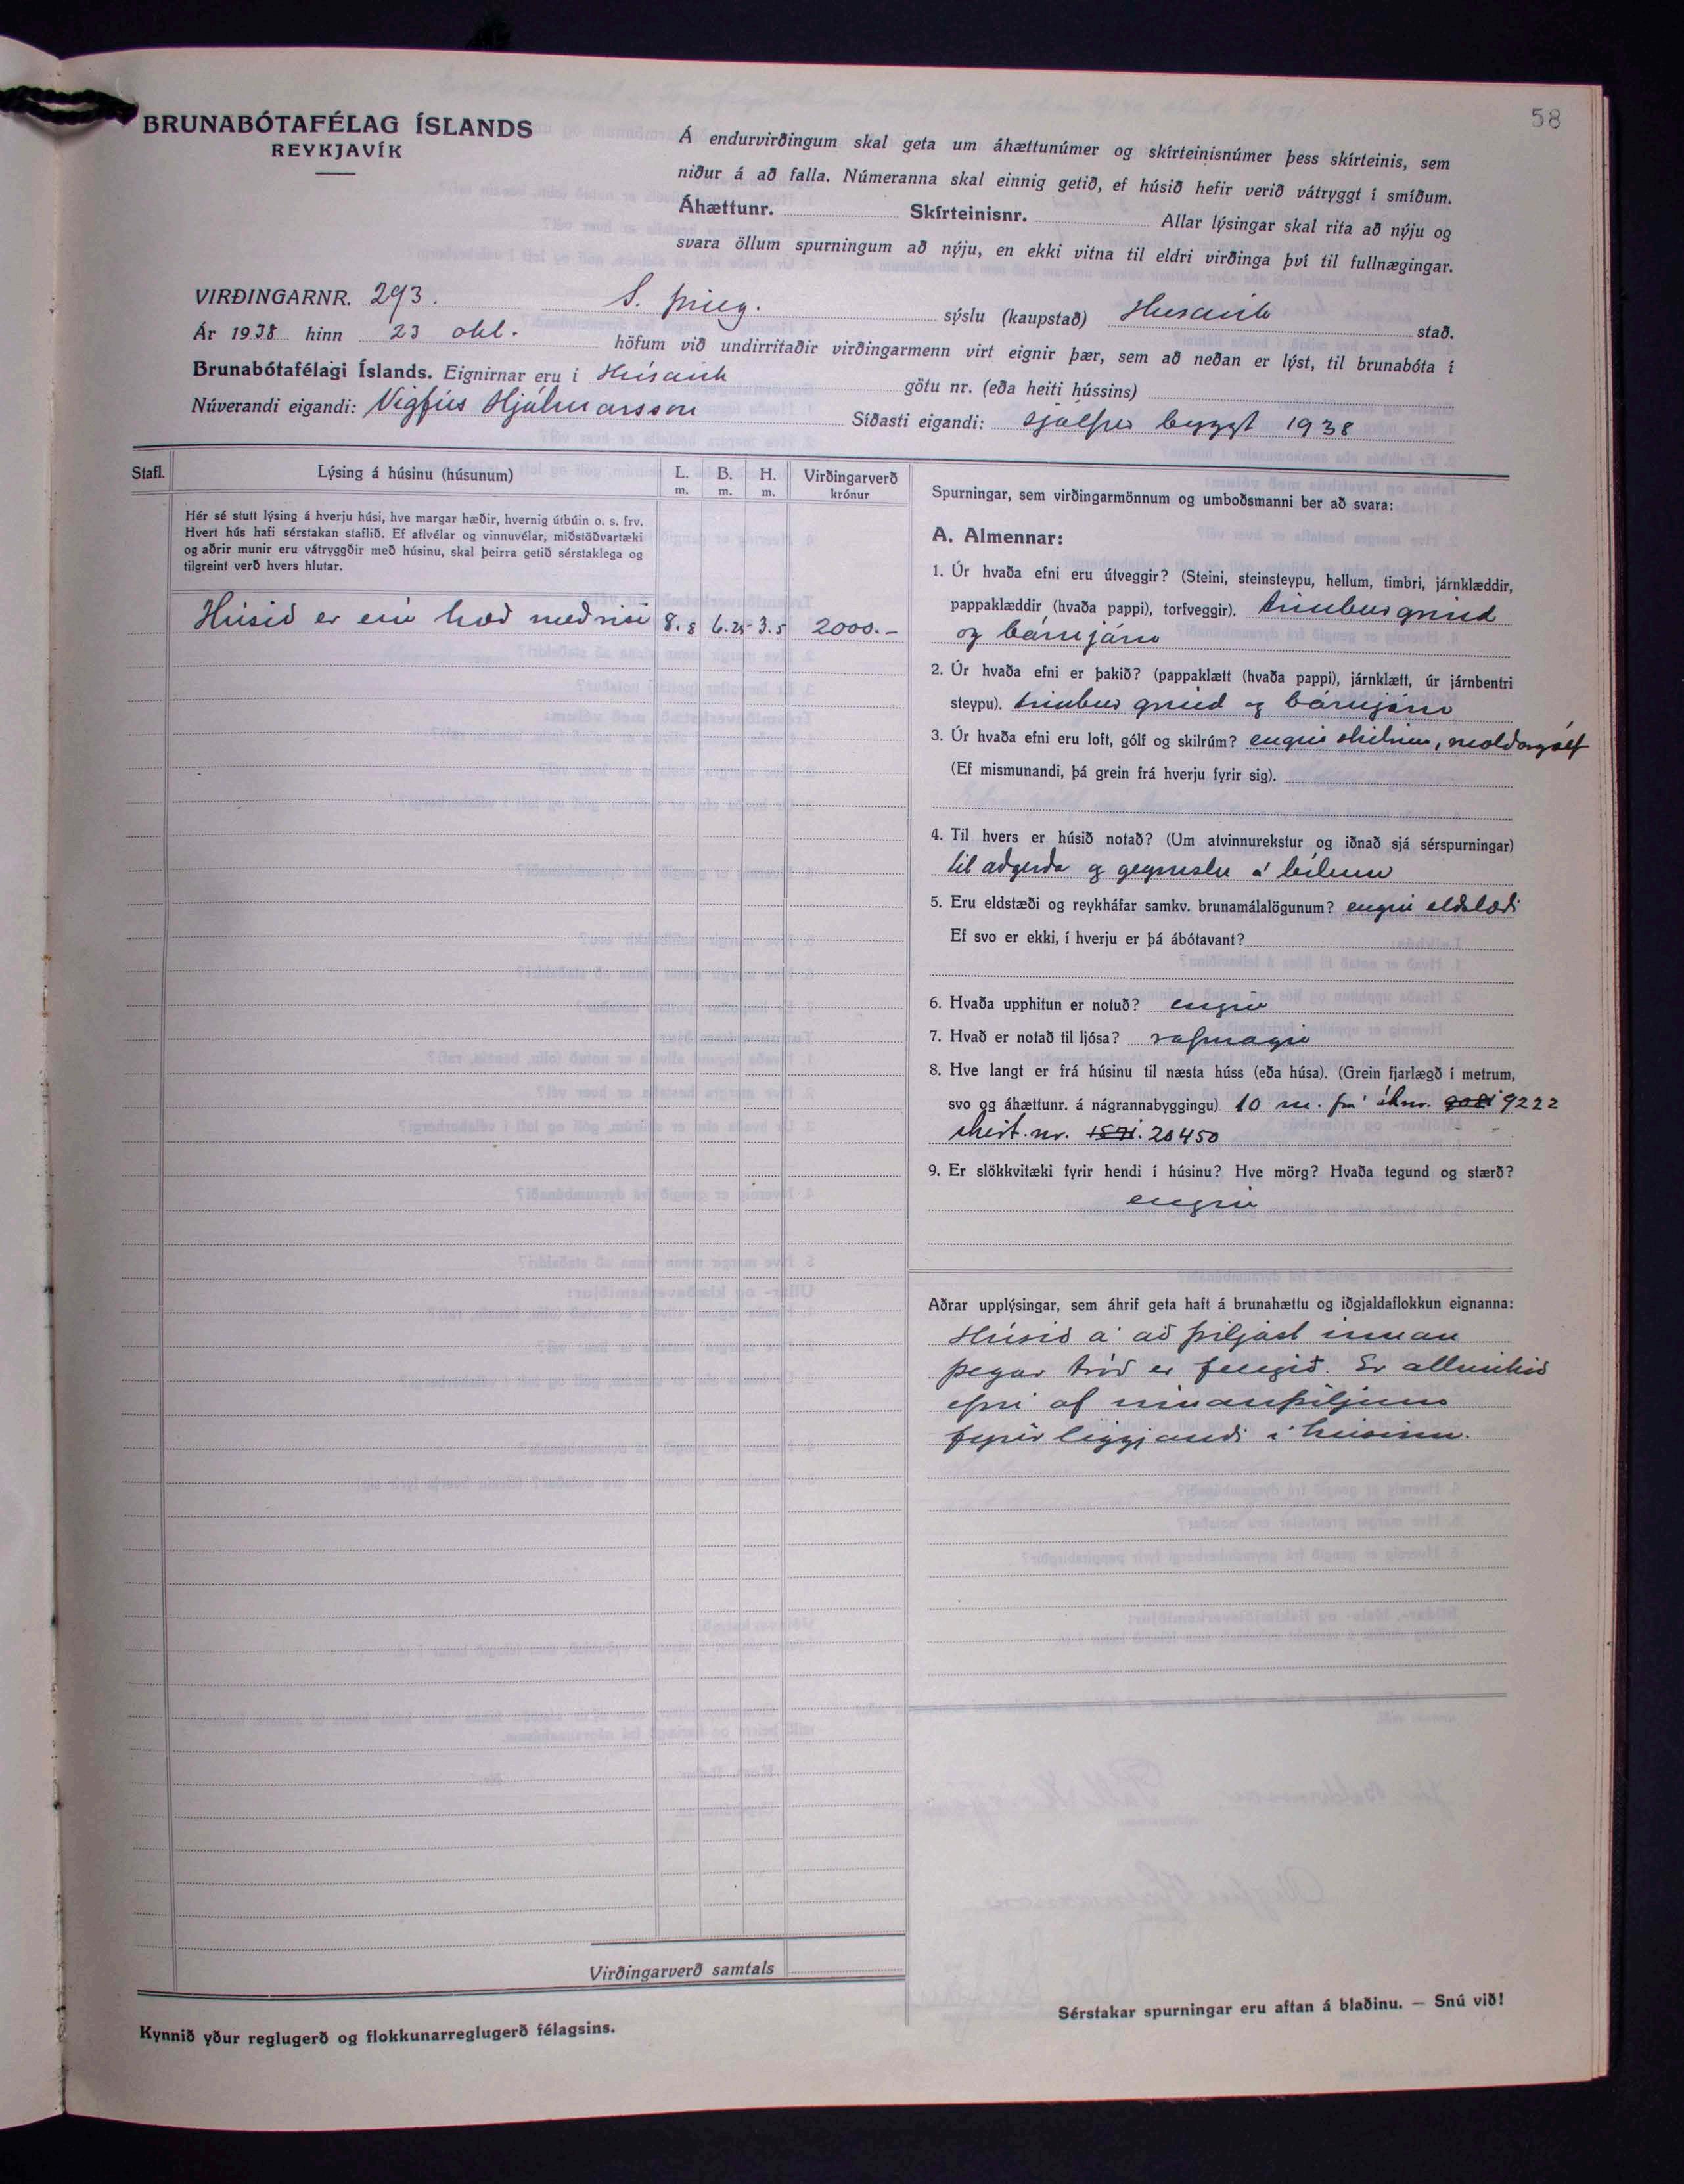 58
BRUNABÓTAFÉLAG ÍSLANDS
REYKJAVÍK
Á endurvirðingum skal geta um áhættunúmer og skírteinisnúmer þess skírteinis, sem
niður á að falla. Númeranna skal einnig getið, ef húsið hefir verið vátryggt í smíðum.
Áhættunr. Skírteinisnr. Allar lýsingar skal rita að nýju og
svara öllum spurningum að nýju, en ekki vitna til eldri virðinga því til fullnægingar.
VIRÐINGARNR. 293. S. Þing. sýslu (kaupstað) Húsavík stað.
Ár 1938 hinn 23 okt. höfum við undirritaðir virðingarmenn virt eignir þær, sem að neðan er lýst, til brunabóta í
Brunabótafélagi Íslands. Eignirnar eru í Húsavík götu nr. (eða heiti hússins)
Núverandi eigandi: Vigfús Hjálmarsson Síðasti eigandi: sjálfur byggt 1938
Stafl. Lýsing á húsinu (húsunum) L. m. B. m. H. m. Virðingarverð krónur
Hér sé stutt lýsing á hverju húsi, hve margar hæðir, hvernig útbúin o. s. frv.
Hvert hús hafi sérstakan staflið. Ef aflvélar og vinnuvélar, miðstöðvartæki
og aðrir munir eru vátryggðir með húsinu, skal þeirra getið sérstaklega og
tilgreint verð hvers hlutar.
Húsið er ein hæð með risi 8.8 6.25 3.5 2000.-
Virðingarverð samtals
Kynnið yður reglugerð og flokkunarreglugerð félagsins.
Spurningar, sem virðingarmönnum og umboðsmanni ber að svara:
A. Almennar:
1. Úr hvaða efni eru útveggir? (Steini, steinsteypu, hellum, timbri, járnklæddir,
pappaklæddir (hvaða pappi), torfveggir). timburgrind
og bárujárn
2. Úr hvaða efni er þakið? (pappaklætt (hvaða pappi), járnklætt, úr járnbentri
steypu). timbur grind og bárujárn
3. Úr hvaða efni eru loft, gólf og skilrúm? engin skilrúm, moldargólf
(Ef mismunandi, þá grein frá hverju fyrir sig).
4. Til hvers er húsið notað? (Um atvinnurekstur og iðnað sjá sérspurningar)
til aðgerða og geymslu á bílum
5. Eru eldstæði og reykháfar samkv. brunamálalögunum? engin eldstæði
Ef svo er ekki, í hverju er þá ábótavant?
6. Hvaða upphitun er notuð? engin
7. Hvað er notað til ljósa? rafmagn
8. Hve langt er frá húsinu til næsta húss (eða húsa). (Grein fjarlægð í metrum,
svo og áhættunr. á nágrannabyggingu) 10 m. frá áhnr. 9222
skirt. nr. 1571. 20450
9. Er slökkvitæki fyrir hendi í húsinu? Hve mörg? Hvaða tegund og stærð?
engin
Aðrar upplýsingar, sem áhrif geta haft á brunahættu og iðgjaldaflokkun eignanna:
Húsið á að þiljast innan
þegar tróð er fengið. Er allmikið
efni af innanþiljum
fyrirliggjandi í húsinu.
Sérstakar spurningar eru aftan á blaðinu. — Snú við!